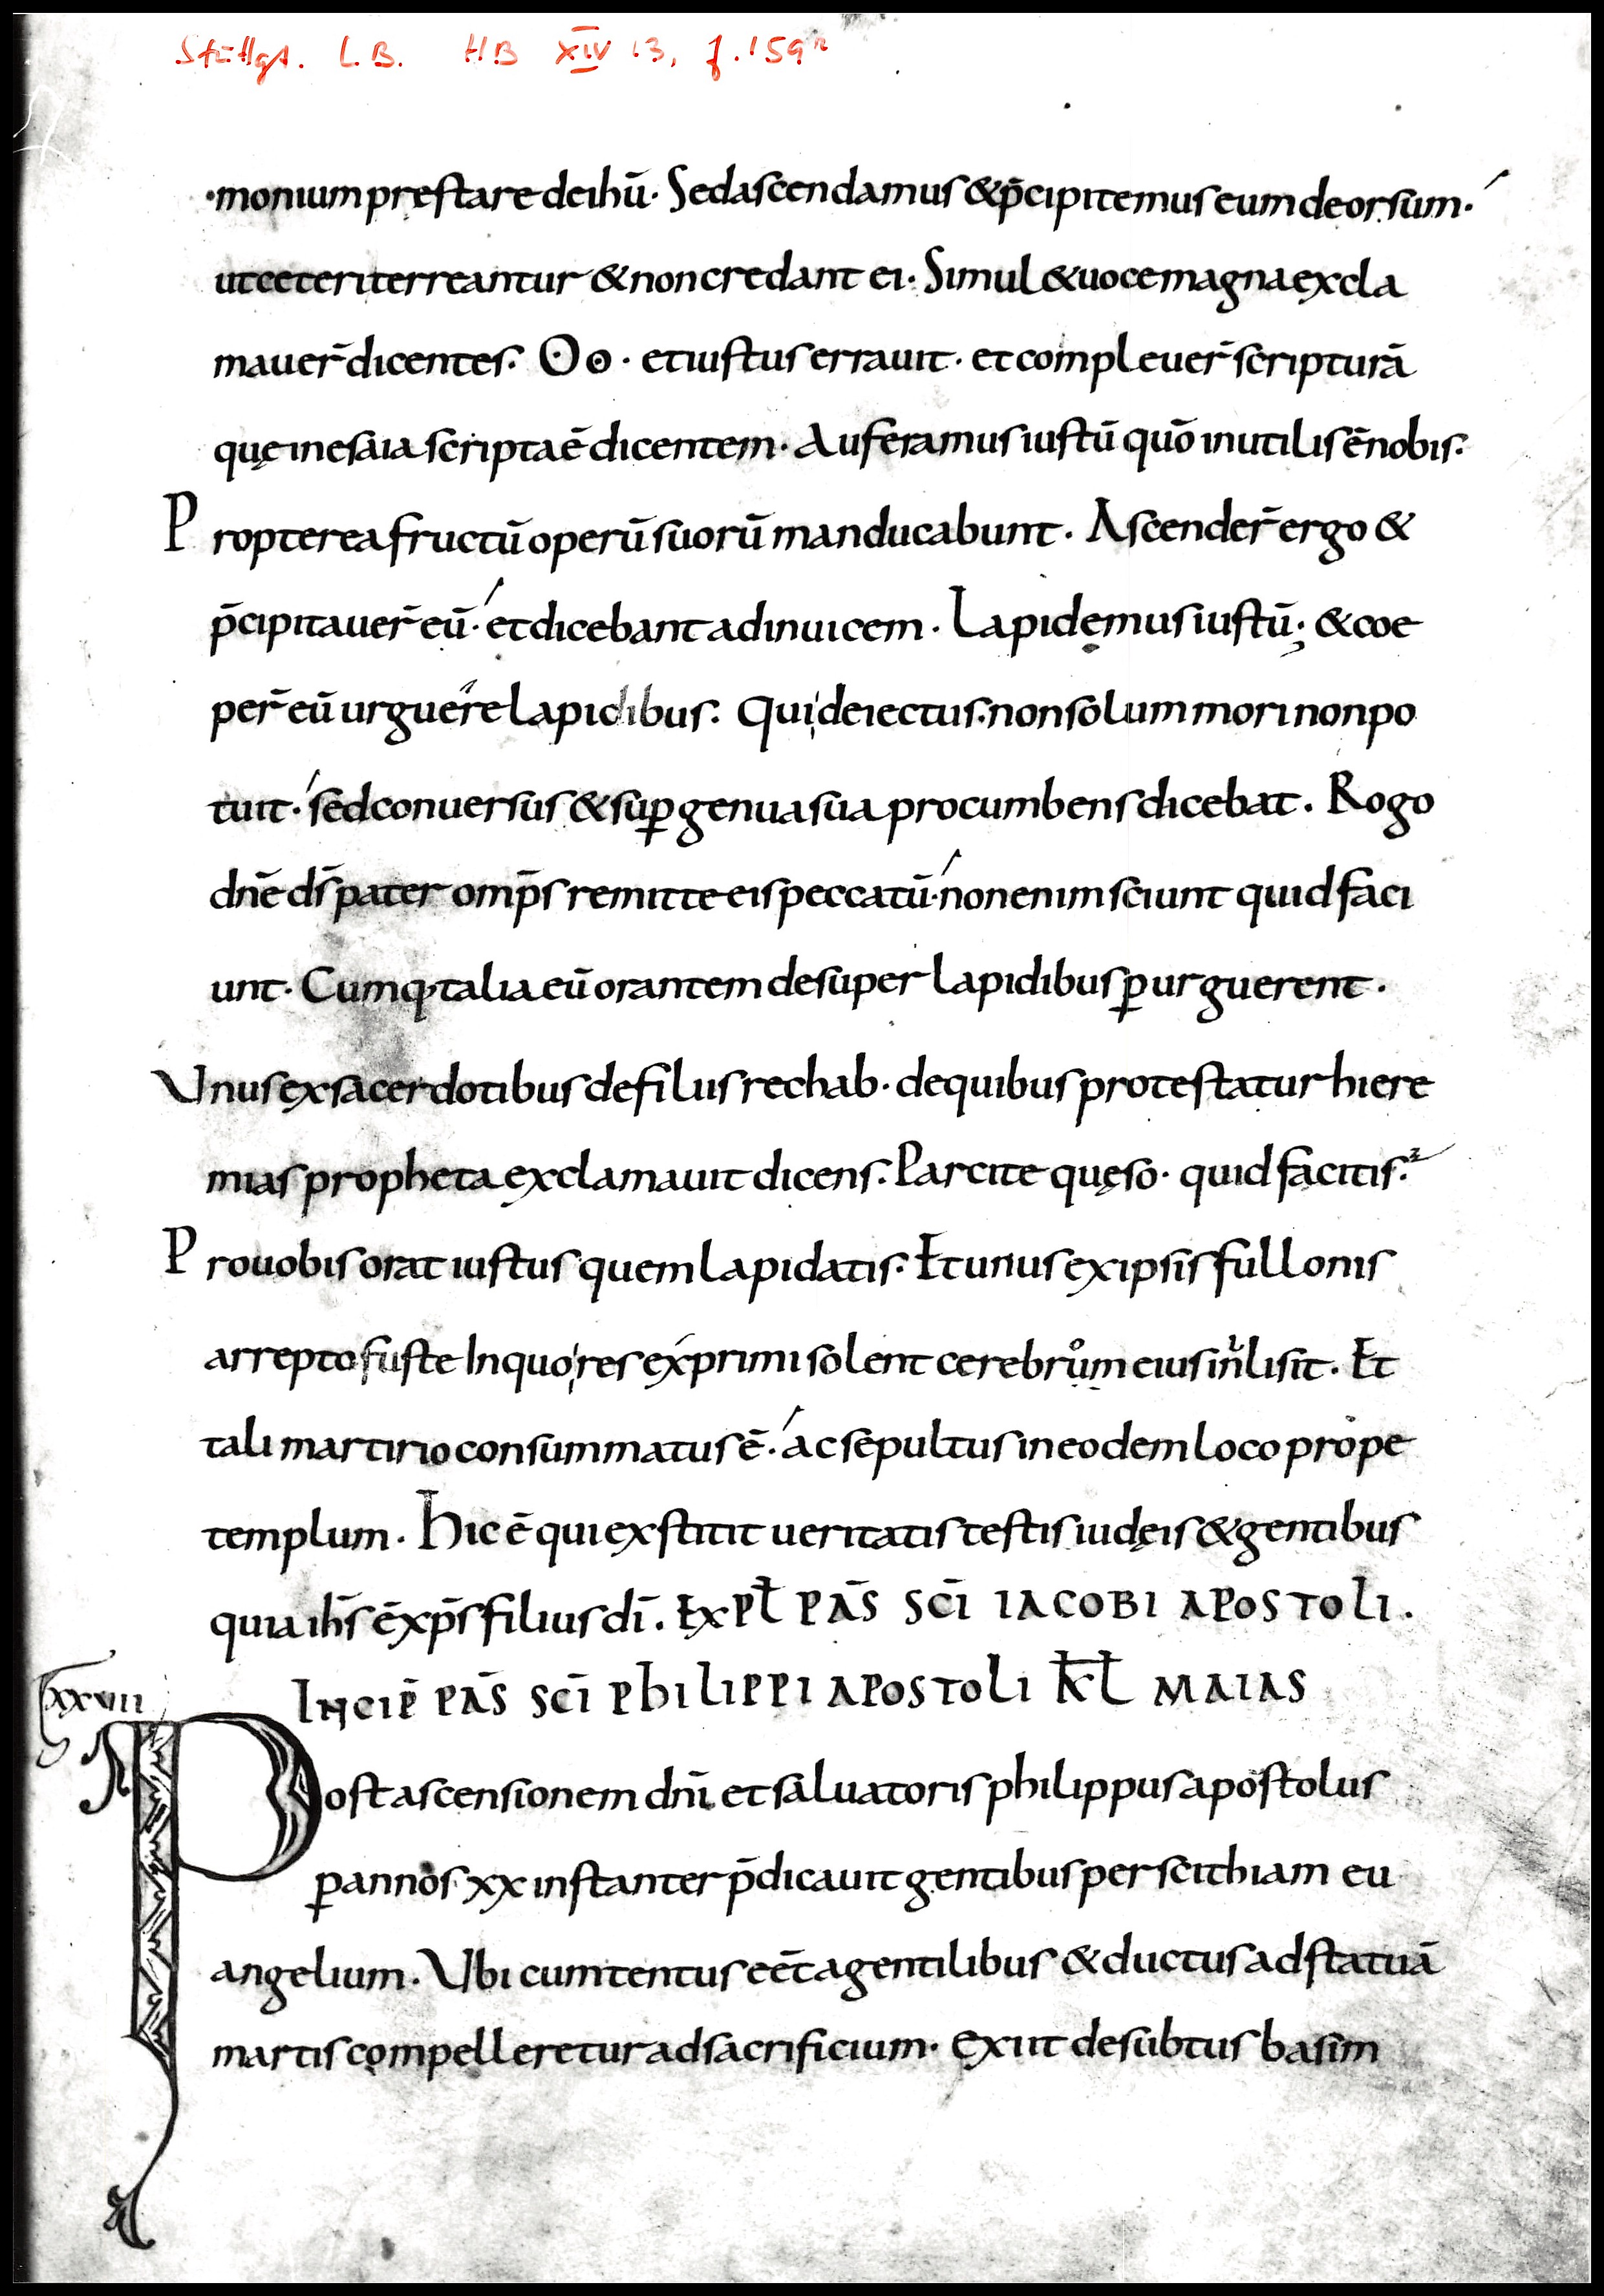 Stuttgt. L.B. HB XIV 13, f. 159r
monium prestare de ihū. Sed ascendamus & p̄cipitemus eum deorsum.
ut ceteri terreantur & non credant ei. Simul & uoce magna excla
mauer̄ dicentes. O o. et iustus errauit. et compleuer̄ scripturā
quę in esaia scripta ē dicentem. Auferamus iustū quō inutilis ē nobis.
Propterea fructū operū suorū manducabunt. Ascender̄ ergo &
p̄cipitauer̄ eū. et dicebant adinuicem. Lapidemus iustū; & coe
per̄ eū urguere lapidibus. Qui deiectus. non solum mori non po
tuit. sed conuersus & suꝑ genua sua procumbens dicebat. Rogo
dn̄e ds̄ pater omp̄s remitte eis peccatū. non enim sciunt quid faci
unt. Cumq; talia eū orantem desuper lapidibus ꝑurguerent.
Unus ex sacerdotibus de filiis rechab. de quibus protestatur hiere
mias propheta exclamauit dicens. Parcite quęso. quid facitis.
Pro uobis orat iustus quem lapidatis. Et unus ex ipsis fullonis
arrepto fuste In quo res exprimi solent cerebrum eius inlisit. Et
tali martirio consummatus ē. ac sepultus in eodem loco prope
templum. Hic ē qui exstitit ueritatis testis iudęis & gentibus
quia ihs̄ ē xp̄s filius dī. EXPL̄ PAS̄ SCĪ IACOBI APOSTOLI.
LXXVIII
INCIP̄ PAS̄ SCĪ PHILIPPI APOSTOLI KL̄ MAIAS
Post ascensionem dnī et saluatoris philippus apostolus
ꝑ annos xx instanter p̄dicauit gentibus per scithiam eu
angelium. Ubi cum tentus eēt a gentilibus & ductus ad statuā
martis compelleretur ad sacrificium. exiit desubtus basim